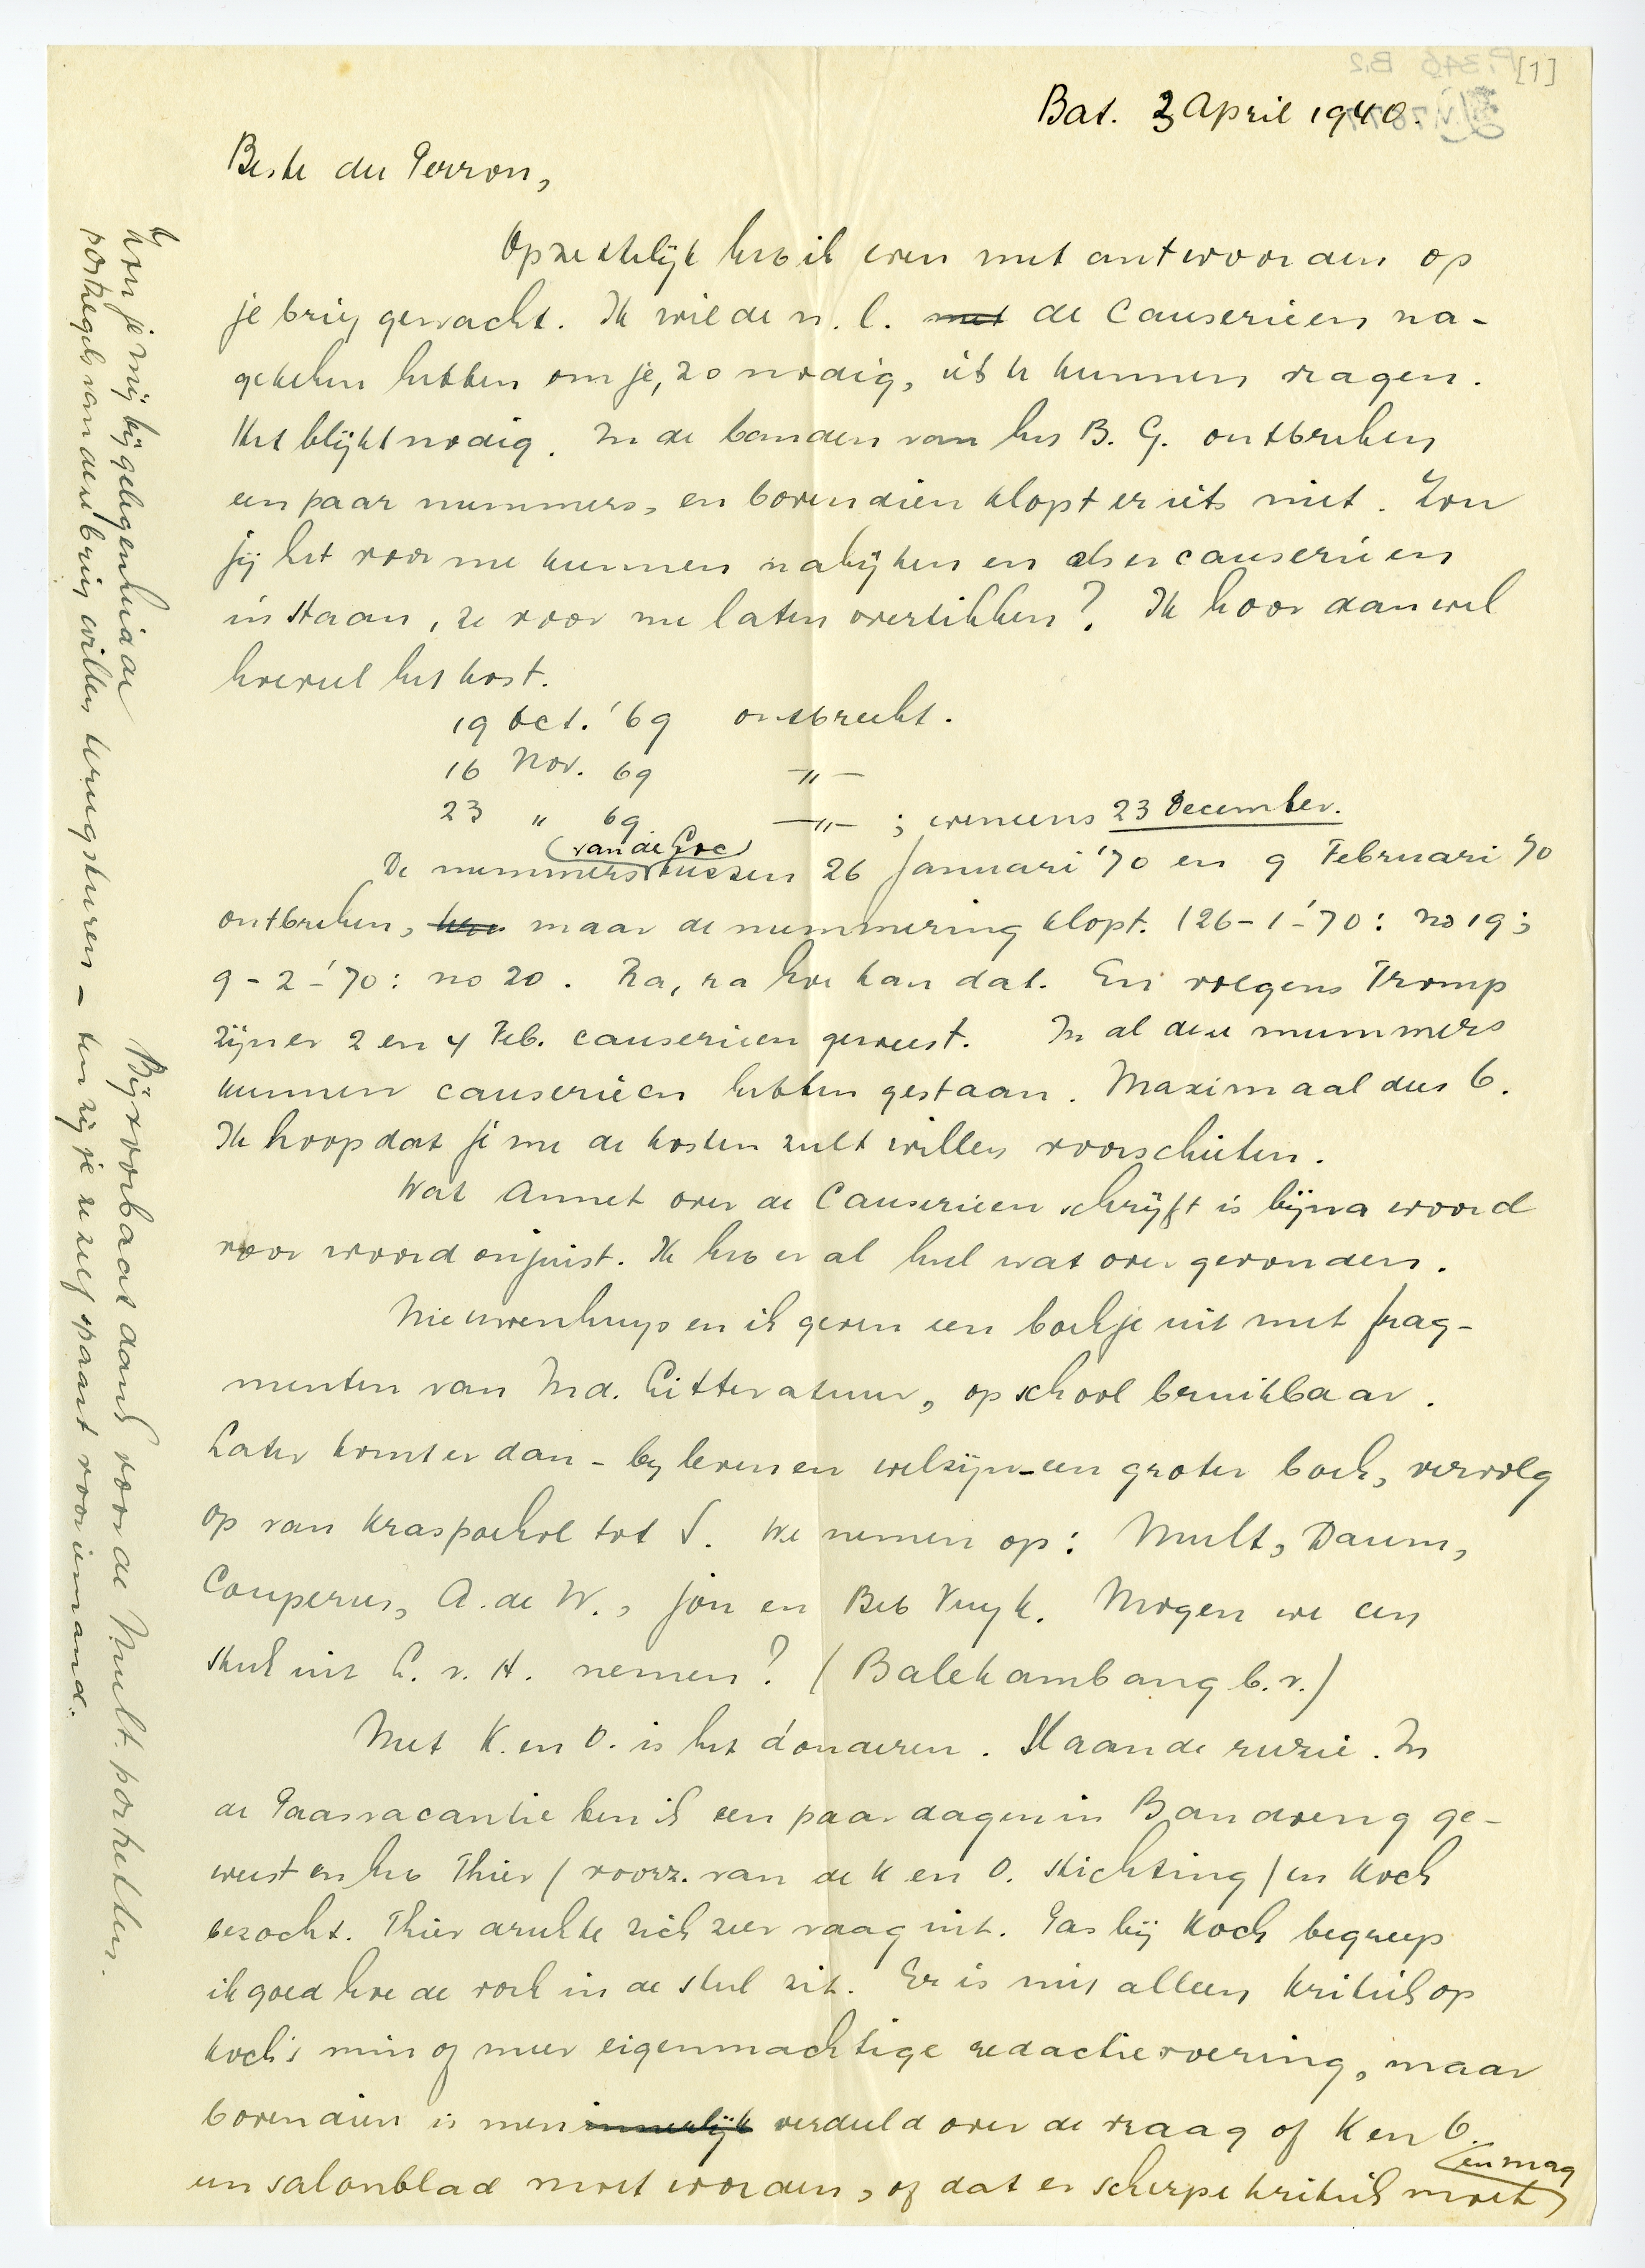 [1]
Bat. 3 April 1940.
Beste du Perron,
Opzettelijk heb ik even met antwoorden op
je brief gewacht. Ik wilde n.l. met de Causerieën na-
gekeken hebben om je, zo nodig, iets te kunnen vragen.
Het blijkt nodig. In de banden van het B. G. ontbreken
een paar nummers, en bovendien klopt er iets niet. Zou
jij het voor me kunnen nakijken en als er causerieën
in staan, ze voor me laten overtikken? Ik hoor dan wel
hoeveel het kost.
19 Oct. '69 ontbreekt.
16 Nov. 69 —〃—
23 〃 69 —〃— ; eveneens 23 December.
De nummers (van de Loc) tussen 26 Januari '70 en 9 Februari 70
ontbreken, maar de nummering klopt. (26-1-'70: no 19;
9-2-'70: no 20. Ra, ra hoe kan dat. En volgens Tromp
zijn er 2 en 4 Feb. causerieën geweest. In al deze nummers
kunnen causerieën hebben gestaan. Maximaal dus 6.
Ik hoop dat je me de kosten zult willen voorschieten.
Wat Annet over de Causerieen schrijft is bijna woord
voor woord onjuist. Ik heb er al heel wat over gevonden.
Nieuwenhuys en ik geven een boekje uit met frag-
menten van Ind. Litteratuur, op school bruikbaar.
Later komt er dan - bij leven en welzijn - een groter boek, vervolg
op van Kraspoekol tot S. We nemen op: Mult, Daum,
Couperus, A. de W., jou en Beb Vuyk. Mogen we een
stuk uit L. v. H. nemen? (Balekambang b.v.)
Met K. en O. is het donderen. Slaande ruzie. In
de Paasvacantie ben ik een paar dagen in Bandoeng ge-
weest en heb Thier (voorz. van de K en O. stichting) en Koch
bezocht. Thier drukte zich zeer vaag uit. Pas bij Koch begreep
ik goed hoe de vork in de steel zit. Er is niet alleen kritiek op
Koch's min of meer eigenmachtige redactievoering, maar
bovendien is men innerlijk verdeeld over de vraag of K en O.
een salonblad moet worden, of dat er scherpe kritiek moet (en mag
Bij voorbaat dank voor de Mult. porketten.
Zou je mij bij gelegenheid de
postzegels van deze brief willen terugsturen - ten zij je ze zelf spaart voor iemand.